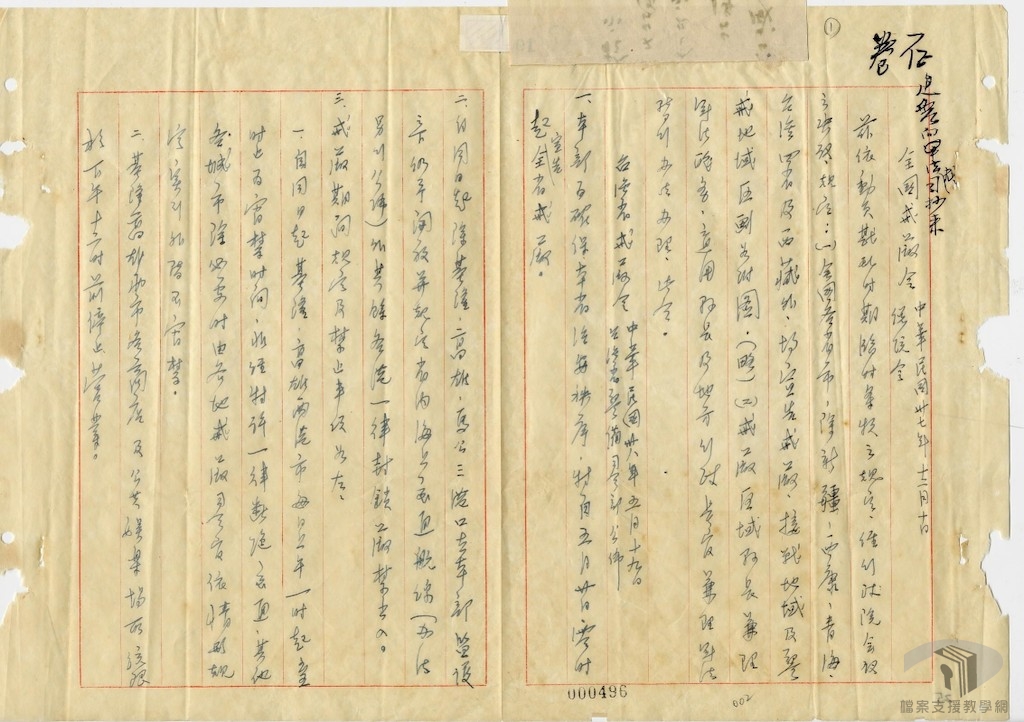 ①
全國戒嚴令
中華民國卅七年十二月十日
總統令
茲依動員戡亂時期臨時條款之規定,經行政院會議
之決議規定:(一)全國各省市,除新疆、西康、青海、
台灣四省及西藏外,均宣告戒嚴。接戰地域及警
戒地域區劃如附圖。(略)(二)戒嚴區域縣長兼理
軍法職務,適用縣長及地方行政長官兼理軍法
暫行辦法辦理,此令。
台灣省戒嚴令
中華民國卅八年五月十九日
台灣省警備司令部公佈
一、本部為確保本省治安秩序,特自五月廿日零時
起宣告全省戒嚴。
二、自同日起除基隆、高雄、馬公三港口在本部監護
之下仍予開放並規定省內海上交通航線(辦法
另行公佈)外其餘各港一律封鎖嚴禁出入。
三、戒嚴期間規定及禁止事項如左:
一、自同日起基隆、高雄兩港市每日上午一時起至
時止為宵禁時間,非經特許一律斷絕交通,其他
各城市除必要時由各地戒嚴司令官依情形規
定實行外暫不宵禁。
二、基隆高雄兩市各商店及公共娛樂場所統限
於下午十二時前停止營業。
000496
002
檔案支援教學網